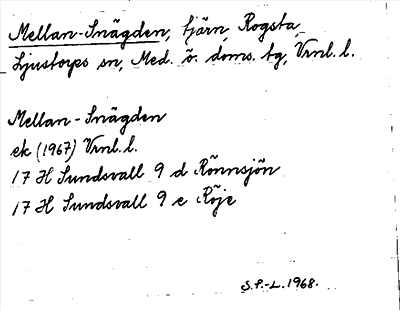 Mellan-Snägden, tjärn, Rogsta,
Ljustorps sn, Med. ö. doms. tg, Vrnl. l.
Mellan-Snägden
ek (1967) Vrnl. l.
17 H Sundsvall 9 d Rönnsjön
17 H Sundsvall 9 e Röje
S.P.-L. 1968.